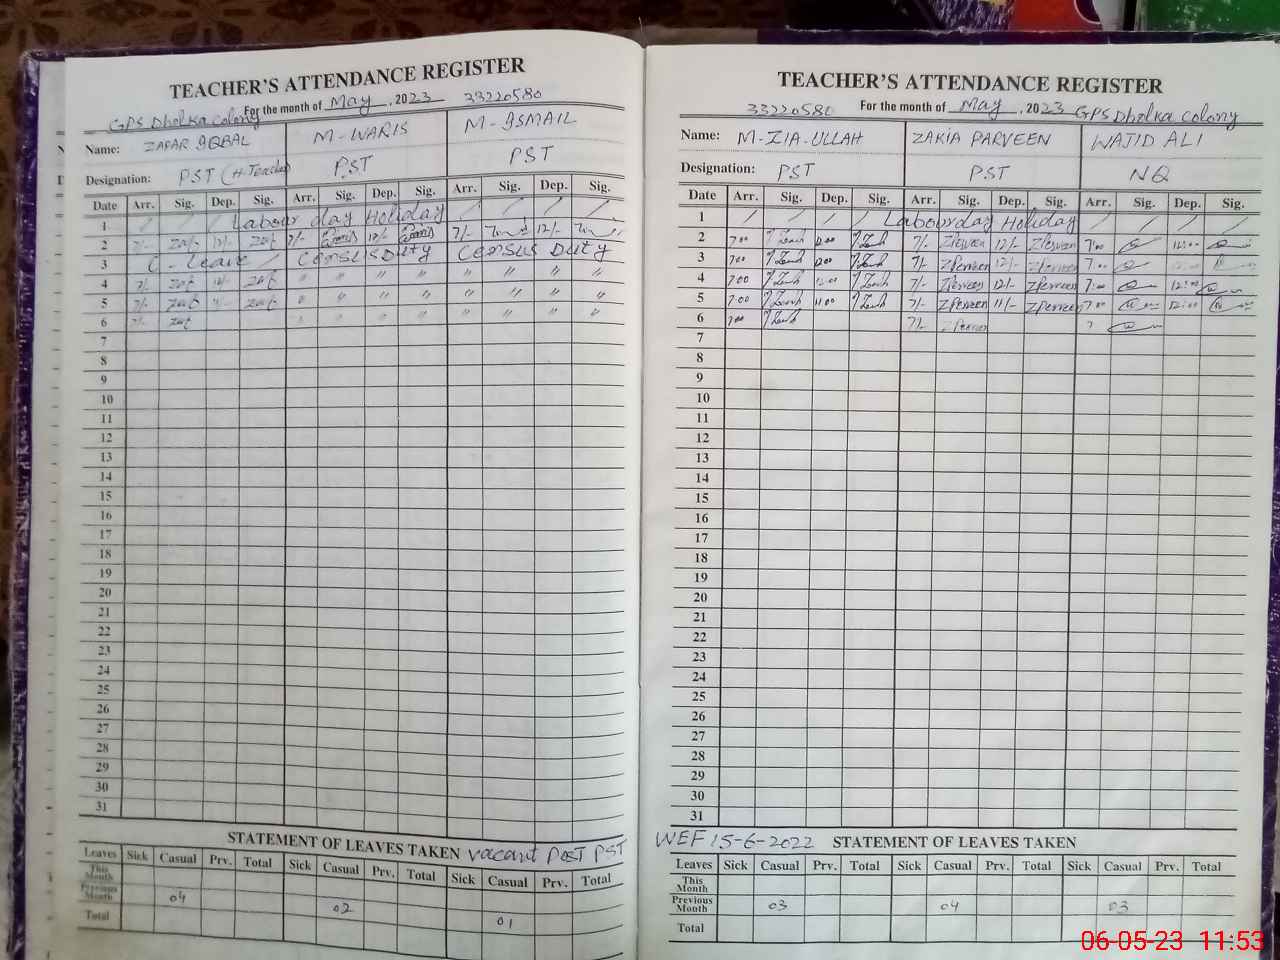 TEACHER'S ATTENDANCE REGISTER
For the month of May, 2023 33220580
GPS Dholka Colony
Name: ZAFAR IQBAL M-WARIS M-ISMAIL
Designation: PST (H-Teacher) PST PST
Date Arr. Sig. Dep. Sig. Arr. Sig. Dep. Sig. Arr. Sig. Dep. Sig.
1 / / Labour day Holiday / / / /
2 7/- Zaf 12/- Zaf 7/- 12/- 7/- 12/-
3 C-leave / Census Duty Census Duty
4 7/- Zaf 12/- Zaf " " " " " " " "
5 7/- Zaf 11/- Zaf " " " " " " " "
6 7/- Zaf " " " " " " " "
7
8
9
10
11
12
13
14
15
16
17
18
19
20
21
22
23
24
25
26
27
28
29
30
31
STATEMENT OF LEAVES TAKEN vacant Post PST
Leaves Sick Casual Prv. Total Sick Casual Prv. Total Sick Casual Prv. Total
This Month
Previous Month 04 02 01
Total
TEACHER'S ATTENDANCE REGISTER
33220580 For the month of May, 2023 GPS Dholka Colony
Name: M-ZIA-ULLAH ZAKIA PARVEEN WAJID ALI
Designation: PST PST NQ
Date Arr. Sig. Dep. Sig. Arr. Sig. Dep. Sig. Arr. Sig. Dep. Sig.
1 / / / / Labourday Holiday / / / /
2 7:00 12:00 7/- ZPerveen 12/- ZPerveen 7:00 12:00
3 7:00 12:00 7/- ZPerveen 12/- ZPerveen 7:00
4 7:00 12:00 7/- ZPerveen 12/- ZPerveen 7:00 12:00
5 7:00 11:00 7/- ZPerveen 11/- ZPerveen 7:00 12:00
6 7:00 7/- ZPerveen 7
7
8
9
10
11
12
13
14
15
16
17
18
19
20
21
22
23
24
25
26
27
28
29
30
31
WEF 15-6-2022 STATEMENT OF LEAVES TAKEN
Leaves Sick Casual Prv. Total Sick Casual Prv. Total Sick Casual Prv. Total
This Month
Previous Month 03 04 03
Total
06-05-23 11:53